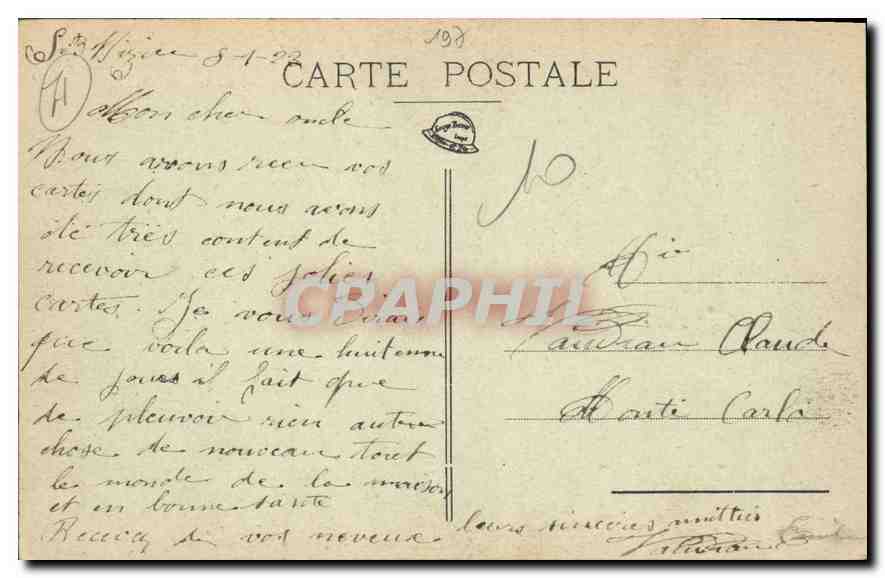 8-1-23
198
CARTE POSTALE
H
Mon cher oncle
Nous avons recu vos
cartes dont nous avons
été très content de
recevoir ces jolies
cartes. Je vous dirai
que voila une huitenne
de jours il fait que
de pleuvoir rien autre
chose de nouveau tout
le monde de la maison
et en bonne sante
Recevez de vos neveux
leurs sincères amitiés
CRAPHIL
Claude
Monte Carlo